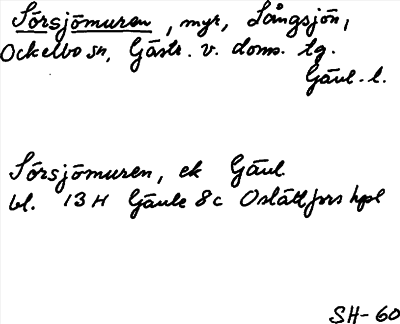 Sörsjömuren, myr, Långsjön,
Ockelbo sn, Gästr. v. doms. tg.
Gävl. l.
Sörsjömuren, ek Gävl.
bl. 13 H Gävle 8c Oslättfors hpl
SH-60